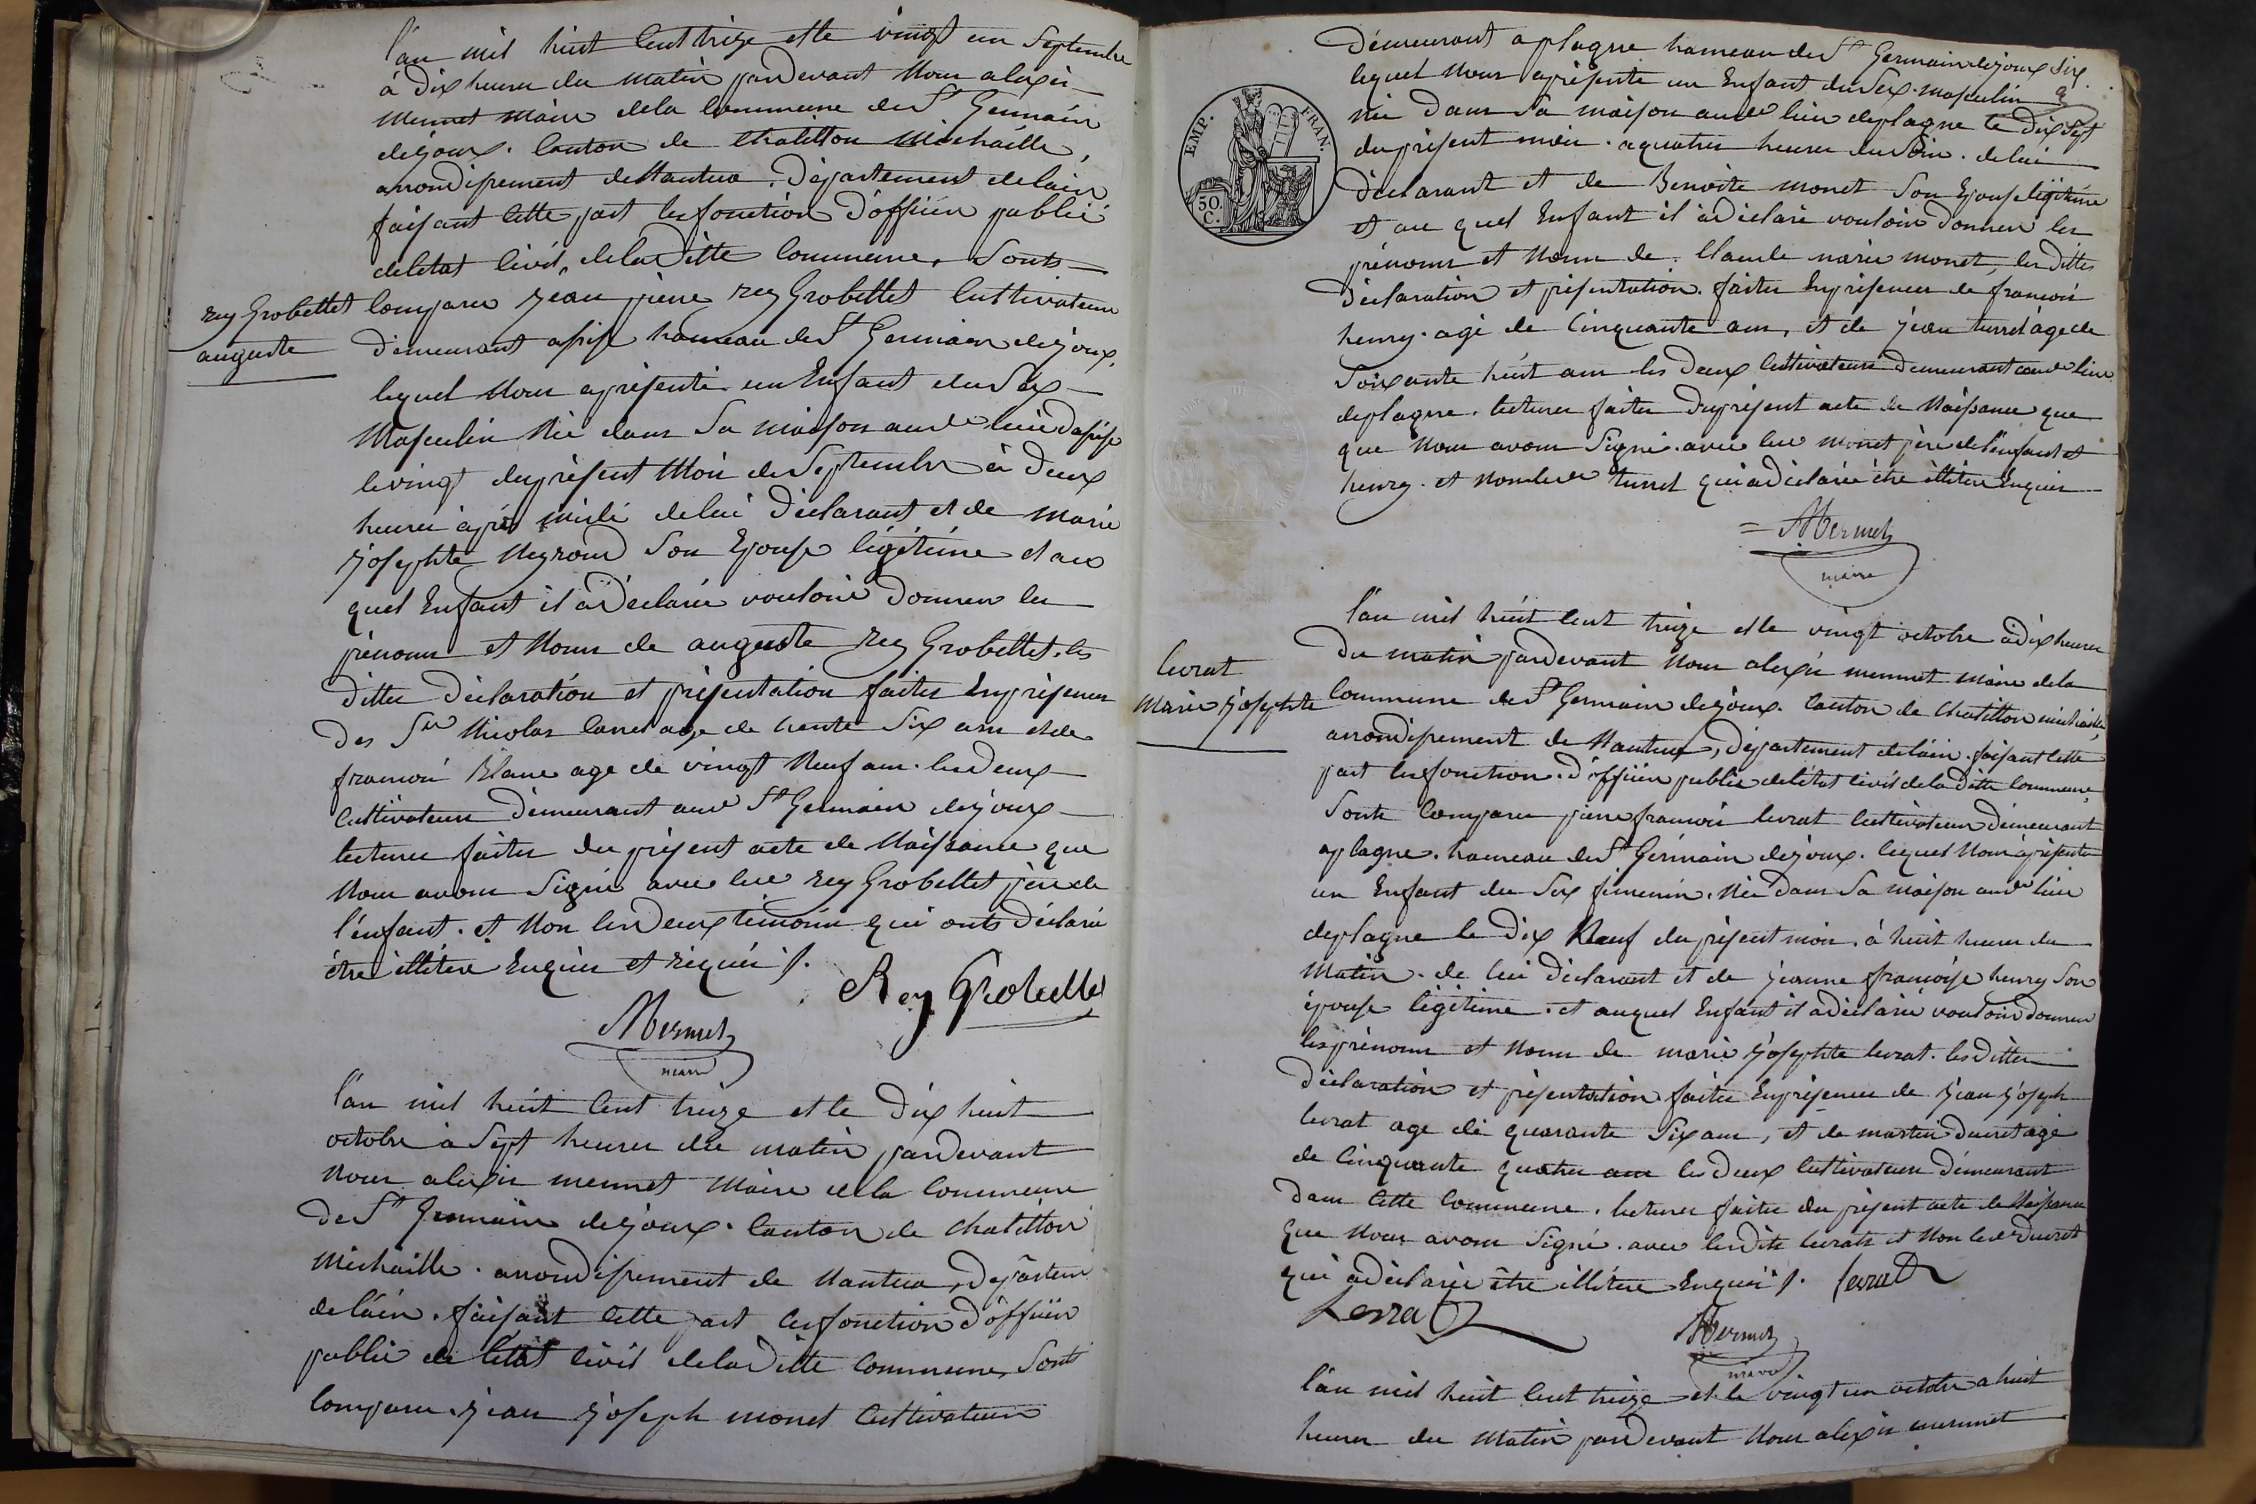 l'an mil huit cent treize et le vingt un septembre
à dix heures du matin pardevant nous alexis
mermet maire dela commune de St Germain
dejoux. canton de chatillon michaille,
arrondissement de Nantua. département delain
faisant cette part les fonction d'officier public
deletat civil, deladitte commune, sonts
rey Grobellet
auguste
comparu jean pierre rey Grobellet cultivateur
demeurant hameau de St Germain dejoux.
lequel nous a présenté un Enfant du sex
masculin né dans sa maison aud lieu
le vingt du présent mois de septembre à deux
heures après midi de lui déclarant et de marie
josephte son Epouse légitime et au
quel Enfant il à déclaré vouloir donner les
prénoms et Noms de auguste rey Grobellet. les
dittes déclaration et présentation faites En présence
des Sr Nicolas age de trente six ans et de
francois Blanc age de vingt Neuf ans. les deux
cultivateurs demeurant aud St Germain dejoux
lectures faites du présent acte de Naissance que
nous avons signé avec led rey Grobellet père de
l'enfant. et Non les deux témoins qui onts déclaré
être illitéré Enquis et réquis.
Rey Grobellet
Mermet
maire
l'an mil huit cent treize et le dix huit
octobre à sept heures du matin pardevant
nous alexis mermet maire dela commune
de St Germain dejoux. canton de chatillon
michaille. arrondissement de Nantua, départem
de l'ain. faisant cette part les fonction d'officier
public de l'état civil deladitte commune, sont
comparu. jean joseph monet cultivateur
EMP. FRAN.
50.
C.
demeurant a plagne hameau de St Germain dejoux
lequel nous a présenté un Enfant du sex. masculin
né dans sa maison aud lieu deplagne le dix sept
du présent mois. a quatre heures du soir. de lui
déclarant et de Benoite monet son Epouse légitime
et au quel Enfant il à déclaré vouloir donner les
prénoms et Noms de. claude marie monet, les dittes
déclaration et présentation. faites En présence de francois
henry. agé de cinquante ans, et de jean turrel âge de
soixante huit ans les deux cultivateurs demeurant aud lieu
deplagne. lectures faites du présent acte de Naissance que
que nous avons signé. avec led monet père de l'enfant et
henry. et non led turrel qui à déclaré être illitéré Enquis
= Mermet
maire
l'an mil huit cent treize et le vingt octobre à dix heures
levrat
marie josephte
du matin pardevant nous alexis mermet maire dela
commune de St Germain dejoux. canton de chatillon michaille,
arrondissement de Nantua, département delain. faisant cette
part les fonction. d'officier public de l'état civil deladitte commune,
sonts comparu pierre francois levrat cultivateur demeurant
a plagne. hameau de St Germain dejoux. lequel nous a présenté
un Enfant du sex féminin. née dans sa maison aud lieu
deplagne le dix Neuf du présent mois. à huit heures du
matin. de lui déclarant et de jeanne francoise henry son
épouse légitime. et auquel Enfant il a déclaré vouloir donner
les prénoms et noms de marie josephte levrat. les dittes
déclaration et présentation faites En présence de jean joseph
levrat age de quarante six ans, et de martin ducret agé
de cinquante quatre ans les deux cultivateurs demeurant
dans cette commune. lectures faites du présent acte de Naissance
que nous avons signé. avec lesdits levrats et Non led ducret
qui à déclaré être illitéré Enquis. levrat
Levrat
Mermet
maire
l'an mil huit cent treize et le vingt un octobre a huit
heures du matin pardevant nous alexis mermet